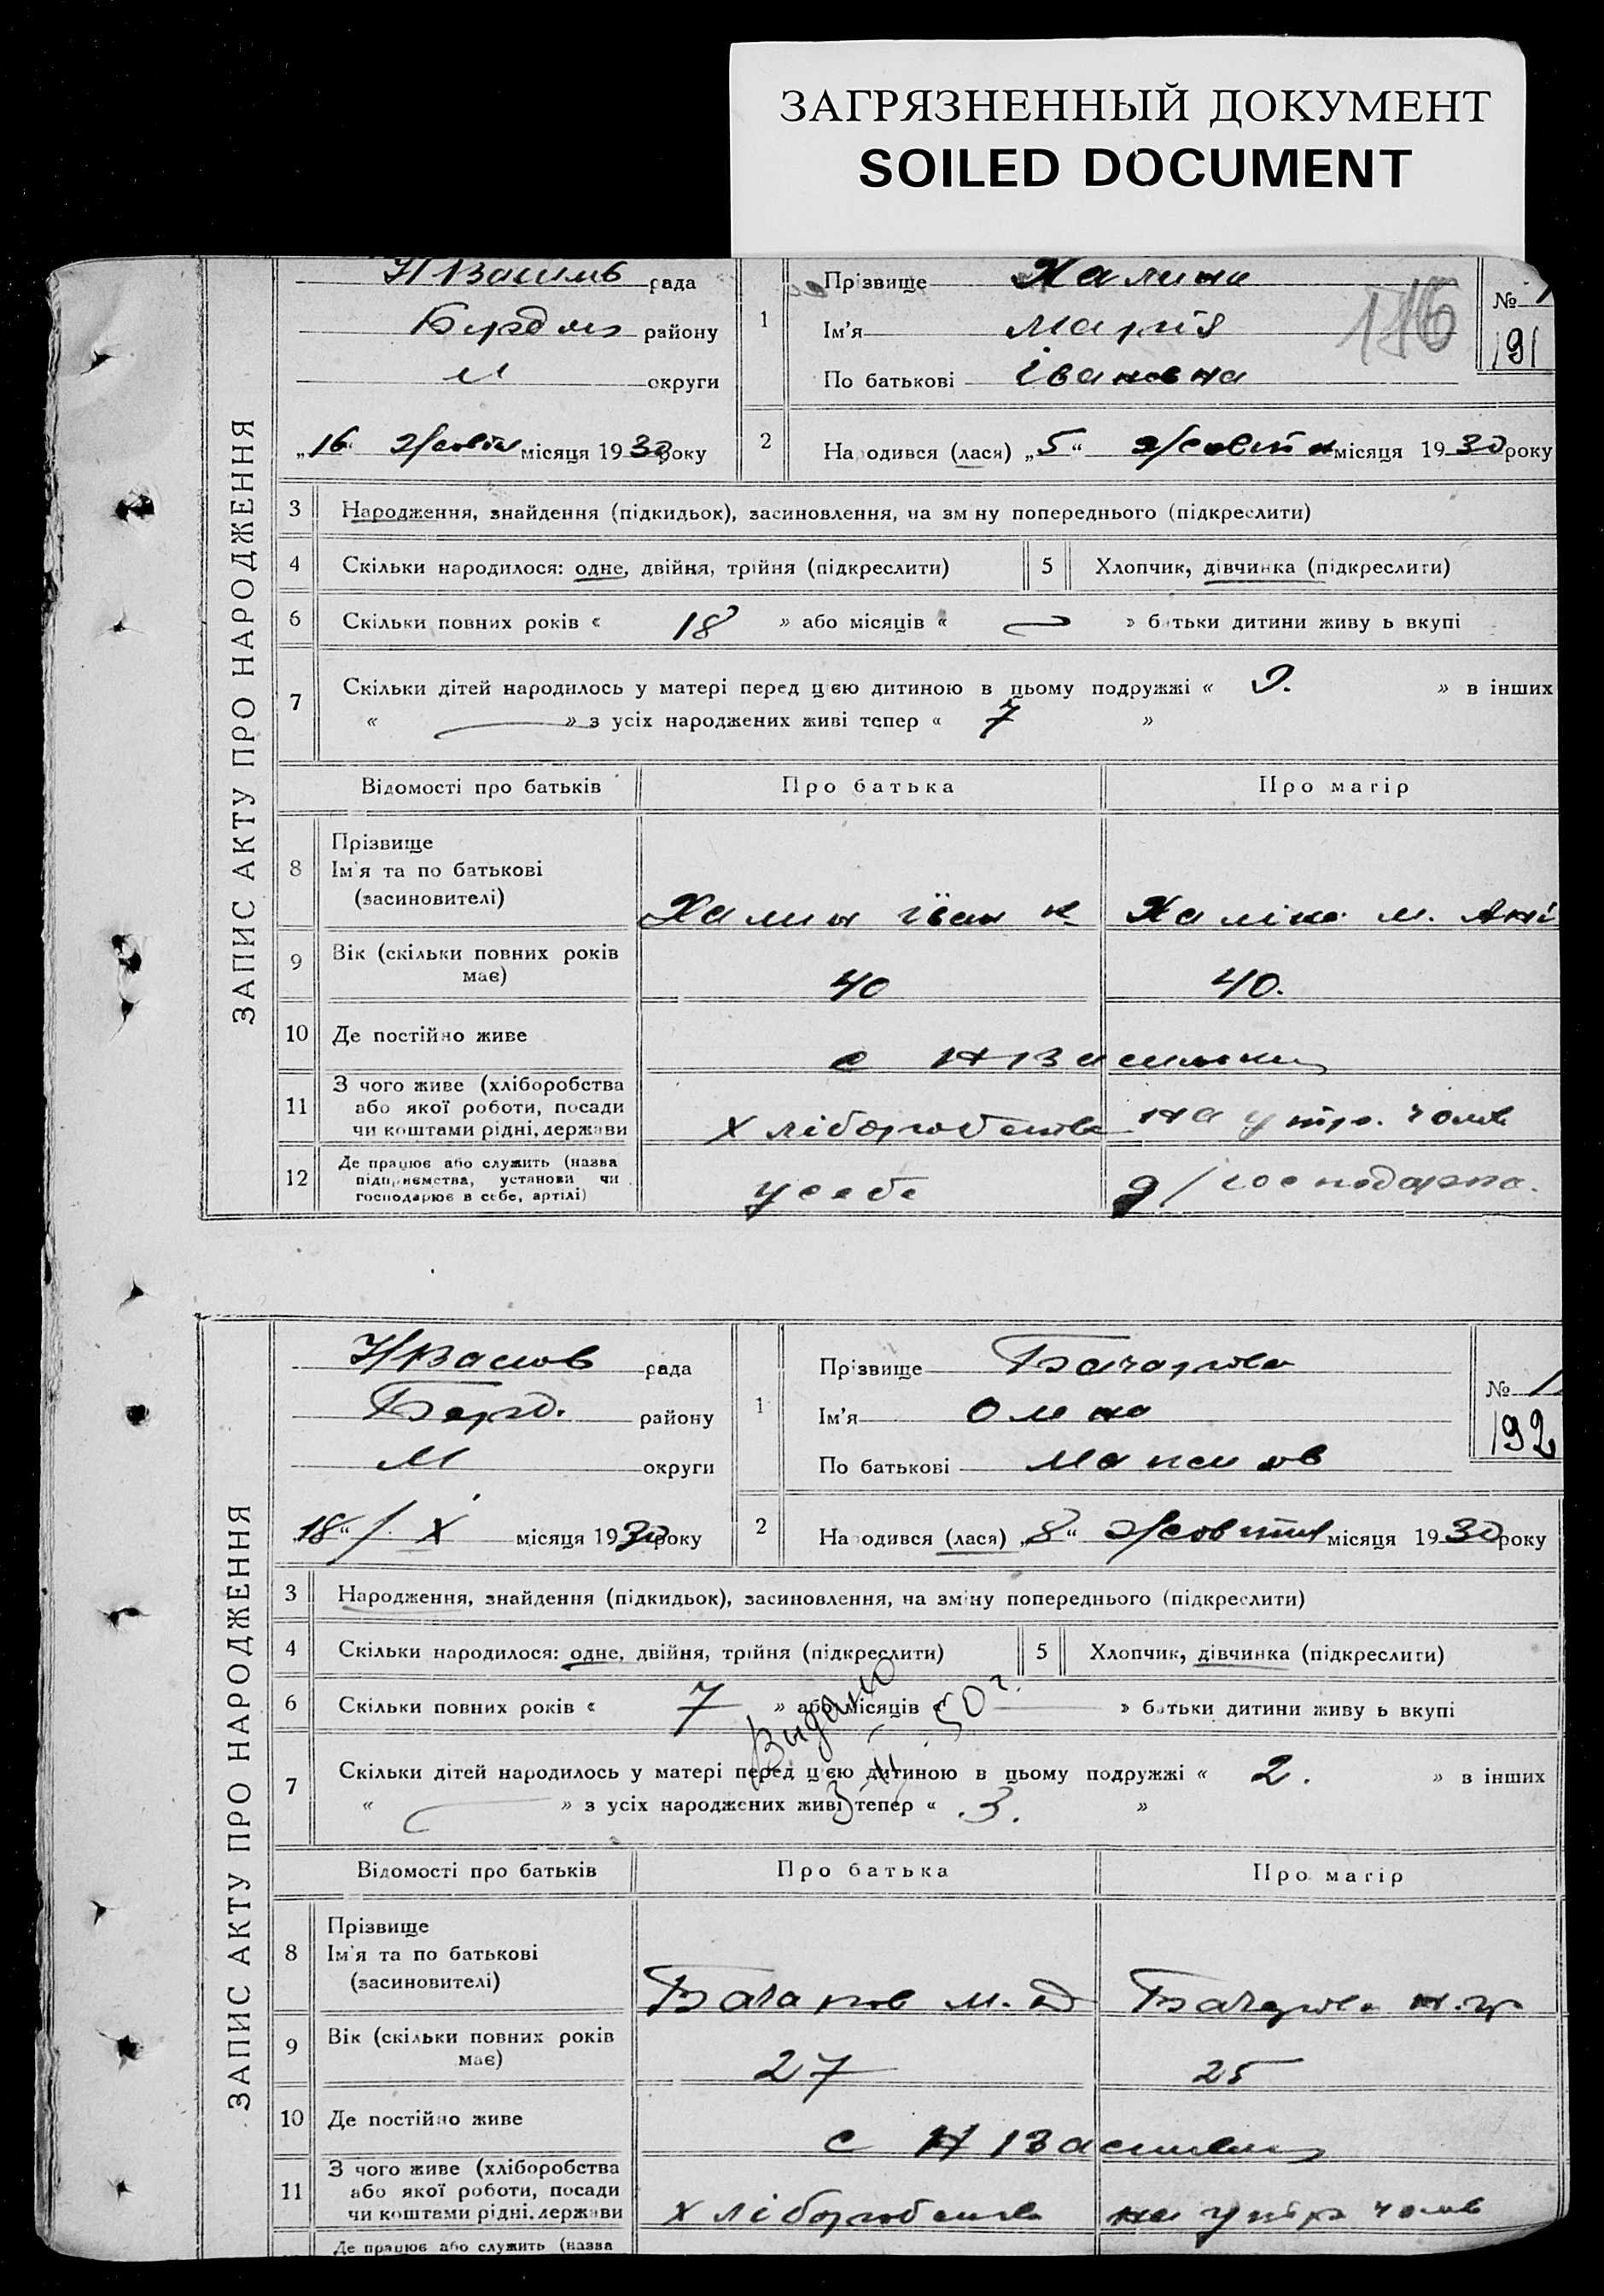 ЗАГРЯЗНЕННЫЙ ДОКУМЕНТ
SOILED DOCUMENT
ЗАПИС АКТУ ПРО НАРОДЖЕННЯ
Н Васильв рада
Бердян району
М округи
„16“ Жовтн місяця 1930 року
1
Прізвище Халина
Ім'я Марія
По батькові Івановна
116
№ 1
191
2
Народився (лася) „5“ Жовтня місяця 1930 року
3 Народження, знайдення (підкидьок), засиновлення, на зміну попереднього (підкреслити)
4 Скільки народилося: одне, двійня, трійня (підкреслити) 5 Хлопчик, дівчинка (підкреслити)
6 Скільки повних років « 18 » або місяців « — » батьки дитини живуть вкупі
7 Скільки дітей народилось у матері перед цією дитиною в цьому подружжі « 9. » в інших
« — » з усіх народжених живі тепер « 7 »
Відомості про батьків Про батька Про матір
8 Прізвище
Ім'я та по батькові
(засиновителі)
Халин Іван К Халіна М. Ані
9 Вік (скільки повних років
має)
40 40.
10 Де постійно живе с Н Васильки
11 З чого живе (хліборобства
або якої роботи, посади
чи коштами рідні, держави
хліборобства на утр. чолов
12 Де працює або служить (назва
підприємства, установи чи
господарює в себе, артілі)
у себе д/господарка.
ЗАПИС АКТУ ПРО НАРОДЖЕННЯ
Н/Васив рада
Берд. району
М округи
„18“ / X місяця 1930 року
1
Прізвище Бачарова
Ім'я Олена
По батькові Максимов
№ 1
192
2
Народився (лася) „8“ Жовтня місяця 1930 року
3 Народження, знайдення (підкидьок), засиновлення, на зміну попереднього (підкреслити)
4 Скільки народилося: одне, двійня, трійня (підкреслити) 5 Хлопчик, дівчинка (підкреслити)
6 Скільки повних років « 7 » або місяців « — » батьки дитини живуть вкупі
Видано
50 г.
7 Скільки дітей народилось у матері перед цією дитиною в цьому подружжі « 2. » в інших
« — » з усіх народжених живі тепер « 3. »
Відомості про батьків Про батька Про матір
8 Прізвище
Ім'я та по батькові
(засиновителі)
Бачаров М. Д Бачарова Н.
9 Вік (скільки повних років
має)
27 25
10 Де постійно живе с Н Васильки
11 З чого живе (хліборобства
або якої роботи, посади
чи коштами рідні, держави
хліборобства на утр чолов
Де працює або служить (назва